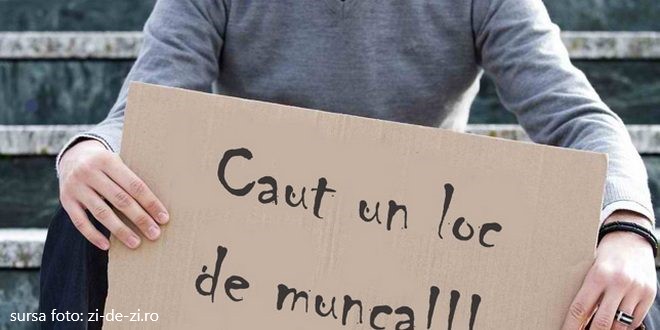 Caut un loc
de munca!!!
sursa foto: zi-de-zi.ro